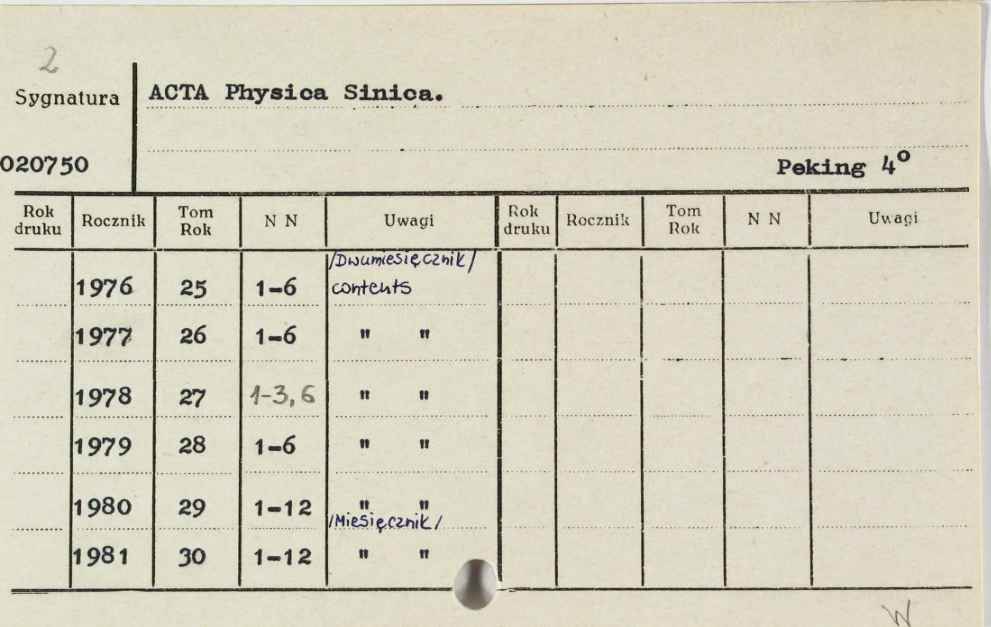 2
Sygnatura ACTA Physica Sinica.
020750 Peking 4°
Rok druku Rocznik Tom Rok N N Uwagi Rok druku Rocznik Tom Rok N N Uwagi
/Dwumiesięcznik/
1976 25 1-6 contents
1977 26 1-6 " "
1978 27 1-3, 6 " "
1979 28 1-6 " "
1980 29 1-12 " "
/Miesięcznik/
1981 30 1-12 " "
W